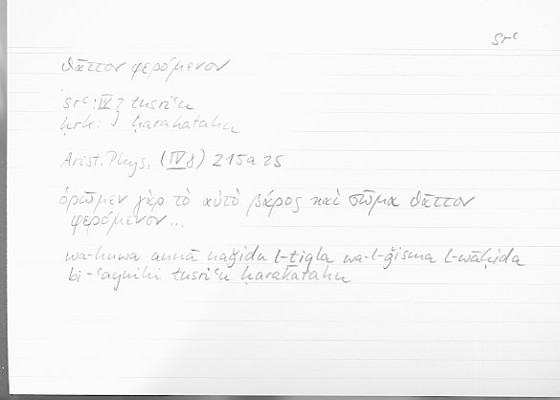 srᶜ
θᾶττον φερόμενον
srᶜ: IV } tusriᶜu
ḥrk: } ḥarakatahu
Arist. Phys. (IV 8) 215a25
ὁρῶμεν γὰρ τὸ αὐτὸ βάρος καὶ σῶμα θᾶττον
φερόμενον...
wa-huwa annā naǧidu l-ṯiqla wa-l-ǧisma l-wāḥida
bi-ᶜaynihi tusriᶜu ḥarakatahu